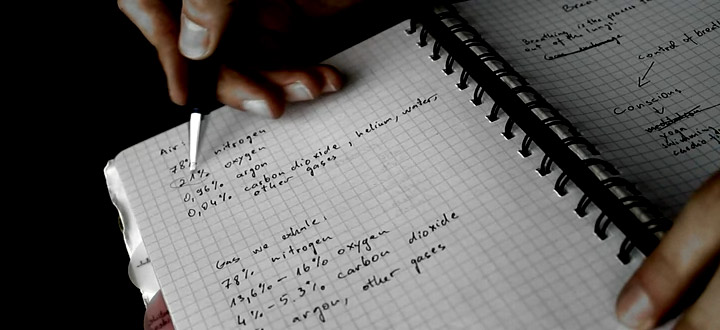 Air:
78% nitrogen
21% oxygen
0,96% argon
0,04% carbon dioxide, helium, water,
other gases
Gas we exhale:
78% nitrogen
13,6% - 16% oxygen
4% - 5.3% carbon dioxide
argon, other gases
Breathing is the process
out of the lungs
control of breath
Conscious
meditation
yoga
swimming
cardio